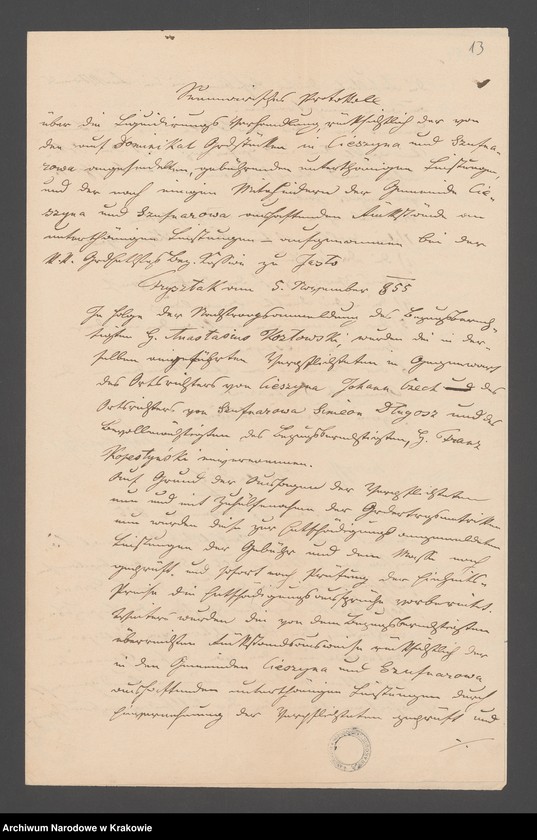 13
Summarisches Protokoll
über die Liquidirungs Verhandlung, rücksichtlich der von
den auf Dominikal Grdstücken in Cieszyna und Szufna-
rowa angesiedelten, gebührenden unterthänigen Leistungen,
und der nach einigen der Gemeinde Cie-
szyna und Szufnarowa aushaftenden Rückstände an
unterthänigen Leistungen – aufgenommen bei der
k.k. Grdstlstgs Bez. Kssion zu Jasło
Frysztak am 5. November 855
In Folge der Nachtragsanmeldung des Bezugsberech-
tigten H. Anastasius Kozłowski, wurden die in der-
selben angeführten Verpflichteten in Gegenwart
des Ortsrichters von Cieszyna Johann Czech und des
Ortsrichters von Szufnarowa Simeon Długosz und des
Bevollmächtigten des Bezugsberechtigten, H. Franz
einvernommen.
Auf Grund der Aussagen der Verpflichteten
nun und mit Zuhilfenahme der Grdertragsmatrikeln
nun wurden diese zur Entschädigung angemeldeten
Leistungen der Gebühr und dem Maße nach
geprüft, und sofort nach Prüfung der Einheits-
Preise die Entschädigungsansprüche vorbereitet.
Weiters wurden die von dem Bezugsberechtigten
überreichten Rückstandsausweise rücksichtlich der
in den Gemeinden Cieszyna und Szufnarowa
aushaftenden unterthänigen Leistungen durch
Einvernehmung der Verpflichteten geprüft und
./.
Archiwum Narodowe w Krakowie